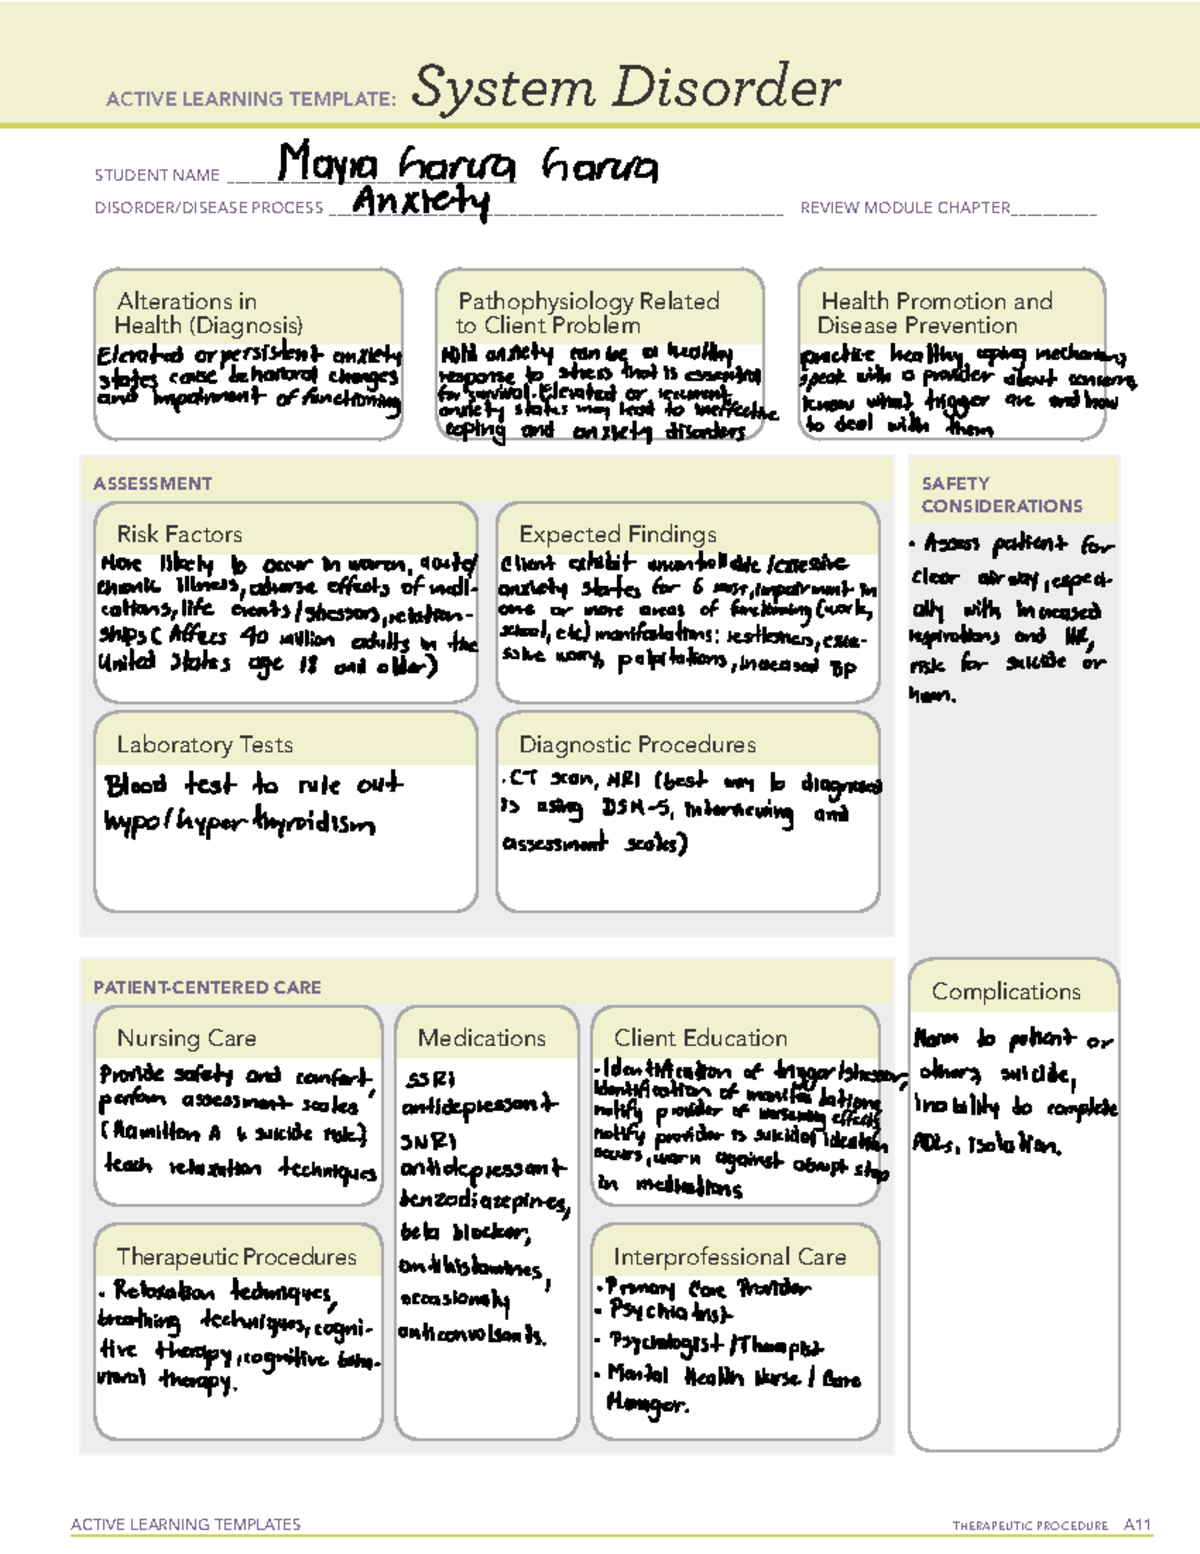 ACTIVE LEARNING TEMPLATE: System Disorder
STUDENT NAME
DISORDER/DISEASE PROCESS Anxiety REVIEW MODULE CHAPTER
Alterations in
Health (Diagnosis)
Elevated or persistent anxiety
states cause behavioral changes
and impairment of functioning
Pathophysiology Related
to Client Problem
Mild anxiety can be a healthy
response to stress that is essential
for survival. Elevated or recurrent
anxiety states may lead to ineffective
coping and anxiety disorders
Health Promotion and
Disease Prevention
practice healthy coping mechanisms
speak with a provider about concerns
know what trigger are and how
to deal with them
ASSESSMENT
Risk Factors
More likely to occur in women, acute/
chronic illness, adverse effects of medi-
cations, life events/stressors, relation-
ships ( Affects 40 million adults in the
United States age 18 and older)
Expected Findings
Client exhibit uncontrollable/excessive
anxiety states for 6 mos, impairment in
one or more areas of functioning (work,
school, etc) manifestations: restlessness, exce-
ssive worry, palpitations, increased BP
Laboratory Tests
Blood test to rule out
hypo/hyper thyroidism
Diagnostic Procedures
· CT scan, MRI (best way to diagnosed
is using DSM-5, interviewing and
assessment scales)
SAFETY
CONSIDERATIONS
· Assess patient for
clear airway, especi-
ally with increased
respirations and HR,
risk for suicide or
harm.
PATIENT-CENTERED CARE
Nursing Care
Provide safety and comfort,
perform assessment scales
(Hamilton A & suicide risk)
teach relaxation techniques
Medications
SSRI
antidepressant
SNRI
antidepressant
benzodiazepines,
beta blocker,
antihistamines,
occasionally
anticonvulsants.
Client Education
· Identification of trigger/stressor,
Identification of manifestations
notify provider of worsening effects
notify provider is suicidal ideation
occurs, warn against abrupt stop
in medications
Therapeutic Procedures
· Relaxation techniques,
breathing techniques, cogni-
tive therapy, cognitive beha-
vioral therapy.
Interprofessional Care
· Primary Care Provider
· Psychiatrist
· Psychologist/Therapist
· Mental Health Nurse / Care
Manager.
Complications
Harm to patient or
others, suicide,
inability to complete
ADLs, isolation.
ACTIVE LEARNING TEMPLATES
THERAPEUTIC PROCEDURE A11